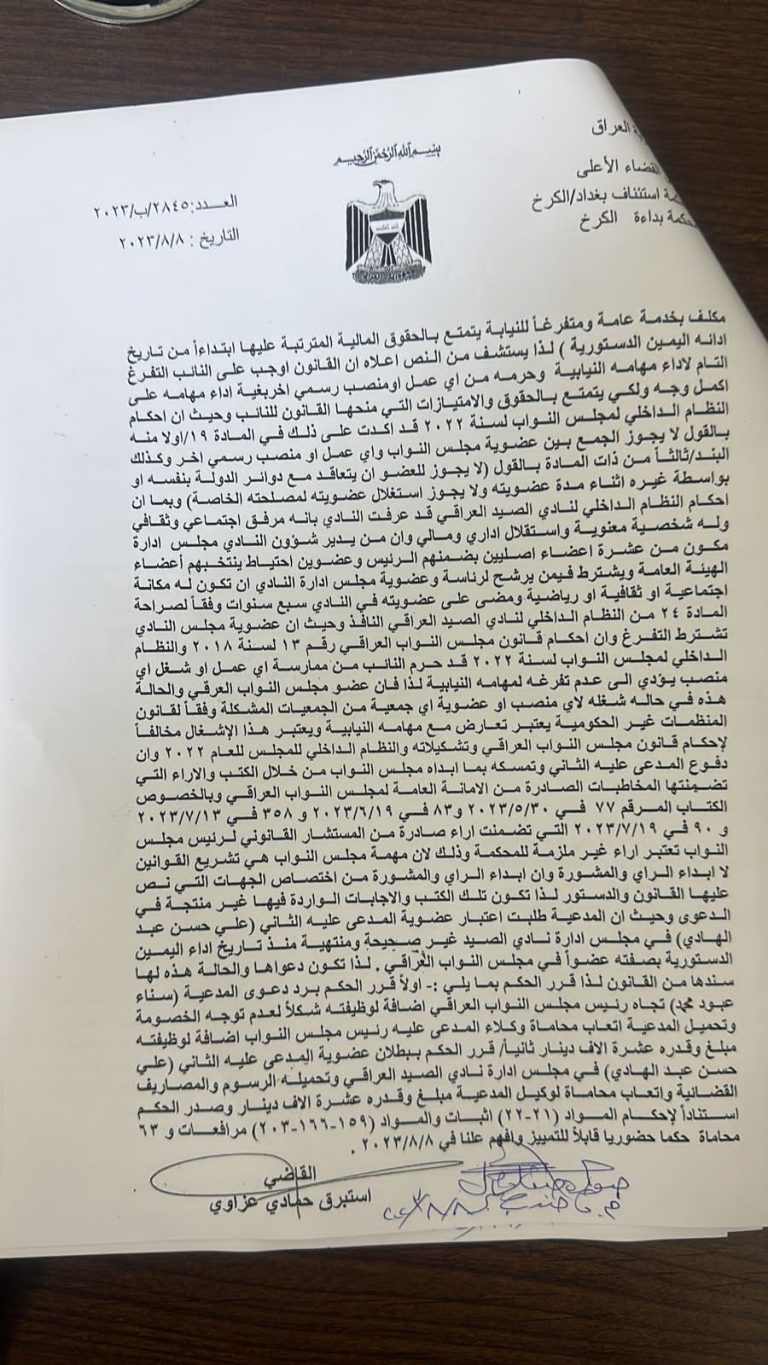 بسم الله الرحمن الرحيم
العراق
القضاء الأعلى
استئناف بغداد/الكرخ
بداءة الكرخ
العدد:٢٨٤٥/ب/٢٠٢٣
التاريخ : ٢٠٢٣/٨/٨
مكلف بخدمة عامة ومتفرغاً للنيابة يتمتع بالحقوق المالية المترتبة عليها ابتداءاً من تاريخ
ادائه اليمين الدستورية ) لذا يستشف من النص اعلاه ان القانون اوجب على النائب التفرغ
التام لاداء مهامه النيابية وحرمه من اي عمل اومنصب رسمي اخربغية اداء مهامه على
اكمل وجه ولكي يتمتع بالحقوق والامتيازات التي منحها القانون للنائب وحيث ان احكام
النظام الداخلي لمجلس النواب لسنة ٢٠٢٢ قد اكدت على ذلك في المادة ١٩/اولا منه
بالقول لا يجوز الجمع بين عضوية مجلس النواب واي عمل او منصب رسمي اخر وكذلك
البند/ثالثاً من ذات المادة بالقول (لا يجوز للعضو ان يتعاقد مع دوائر الدولة بنفسه او
بواسطة غيره اثناء مدة عضويته ولا يجوز استغلال عضويته لمصلحته الخاصة) وبما ان
احكام النظام الداخلي لنادي الصيد العراقي قد عرفت النادي بانه مرفق اجتماعي وثقافي
وله شخصية معنوية واستقلال اداري ومالي وان من يدير شؤون النادي مجلس ادارة
مكون من عشرة اعضاء اصليين بضمنهم الرئيس وعضوين احتياط ينتخبهم أعضاء
الهيئة العامة ويشترط فيمن يرشح لرئاسة وعضوية مجلس ادارة النادي ان تكون له مكانة
اجتماعية او ثقافية او رياضية ومضى على عضويته في النادي سبع سنوات وفقاً لصراحة
المادة ٢٤ من النظام الداخلي لنادي الصيد العراقي النافذ وحيث ان عضوية مجلس النادي
تشترط التفرغ وان احكام قانون مجلس النواب العراقي رقم ١٣ لسنة ٢٠١٨ والنظام
الداخلي لمجلس النواب لسنة ٢٠٢٢ قد حرم النائب من ممارسة اي عمل او شغل اي
منصب يؤدي الى عدم تفرغه لمهامه النيابية لذا فان عضو مجلس النواب العرقي والحالة
هذه في حاله شغله لاي منصب او عضوية اي جمعية من الجمعيات المشكلة وفقاً لقانون
المنظمات غير الحكومية يعتبر تعارض مع مهامه النيابية ويعتبر هذا الإشغال مخالفاً
لإحكام قانون مجلس النواب العراقي وتشكيلاته والنظام الداخلي للمجلس للعام ٢٠٢٢ وان
دفوع المدعى عليه الثاني وتمسكه بما ابداه مجلس النواب من خلال الكتب والاراء التي
تضمنتها المخاطبات الصادرة من الامانة العامة لمجلس النواب العراقي وبالخصوص
الكتاب المرقم ٧٧ في ٢٠٢٣/٥/٣٠ و٨٣ في ٢٠٢٣/٦/١٩ و ٣٥٨ في ٢٠٢٣/٧/١٣
و ٩٠ في ٢٠٢٣/٧/١٩ التي تضمنت اراء صادرة من المستشار القانوني لرئيس مجلس
النواب تعتبر اراء غير ملزمة للمحكمة وذلك لان مهمة مجلس النواب هي تشريع القوانين
لا ابداء الراي والمشورة وان ابداء الراي والمشورة من اختصاص الجهات التي نص
عليها القانون والدستور لذا تكون تلك الكتب والاجابات الواردة فيها غير منتجة في
الدعوى وحيث ان المدعية طلبت اعتبار عضوية المدعى عليه الثاني (علي حسن عبد
الهادي) في مجلس ادارة نادي الصيد غير صحيحة ومنتهية منذ تاريخ اداء اليمين
الدستورية بصفته عضواً في مجلس النواب العراقي . لذا تكون دعواها والحالة هذه لها
سندها من القانون لذا قرر الحكم بما يلي :- اولاً قرر الحكم برد دعوى المدعية (سناء
عبود محمد) تجاه رئيس مجلس النواب العراقي اضافة لوظيفته شكلاً لعدم توجه الخصومة
وتحميل المدعية اتعاب محاماة وكلاء المدعى عليه رئيس مجلس النواب اضافة لوظيفته
مبلغ وقدره عشرة الاف دينار ثانياً/ قرر الحكم ببطلان عضوية المدعى عليه الثاني (علي
حسن عبد الهادي) في مجلس ادارة نادي الصيد العراقي وتحميله الرسوم والمصاريف
القضائية واتعاب محاماة لوكيل المدعية مبلغ وقدره عشرة الاف دينار وصدر الحكم
استناداً لإحكام المواد (٢١-٢٢) اثبات والمواد (١٥٩-١٦٦-٢٠٣) مرافعات و ٦٣
محاماة حكما حضوريا قابلاً للتمييز وافهم علنا في ٢٠٢٣/٨/٨ .
القاضي
استبرق حمادي عزاوي